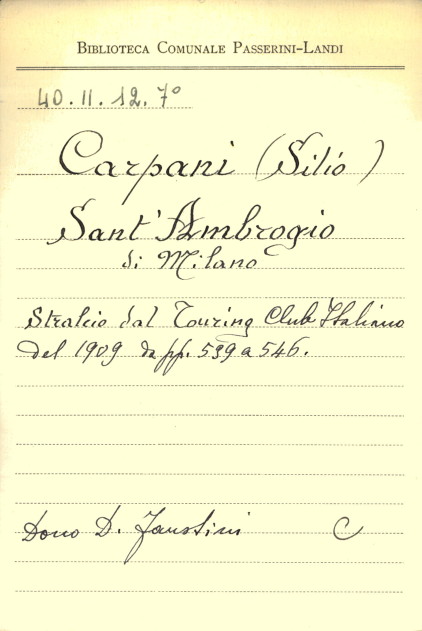 BIBLIOTECA COMUNALE PASSERINI-LANDI
40.II.12.7°
Carpani (Silió)
Sant'Ambrogio
di Milano
Stralcio dal Touring Club Italiano
del 1909 da pp. 539 a 546.
Dono D. Faustini C